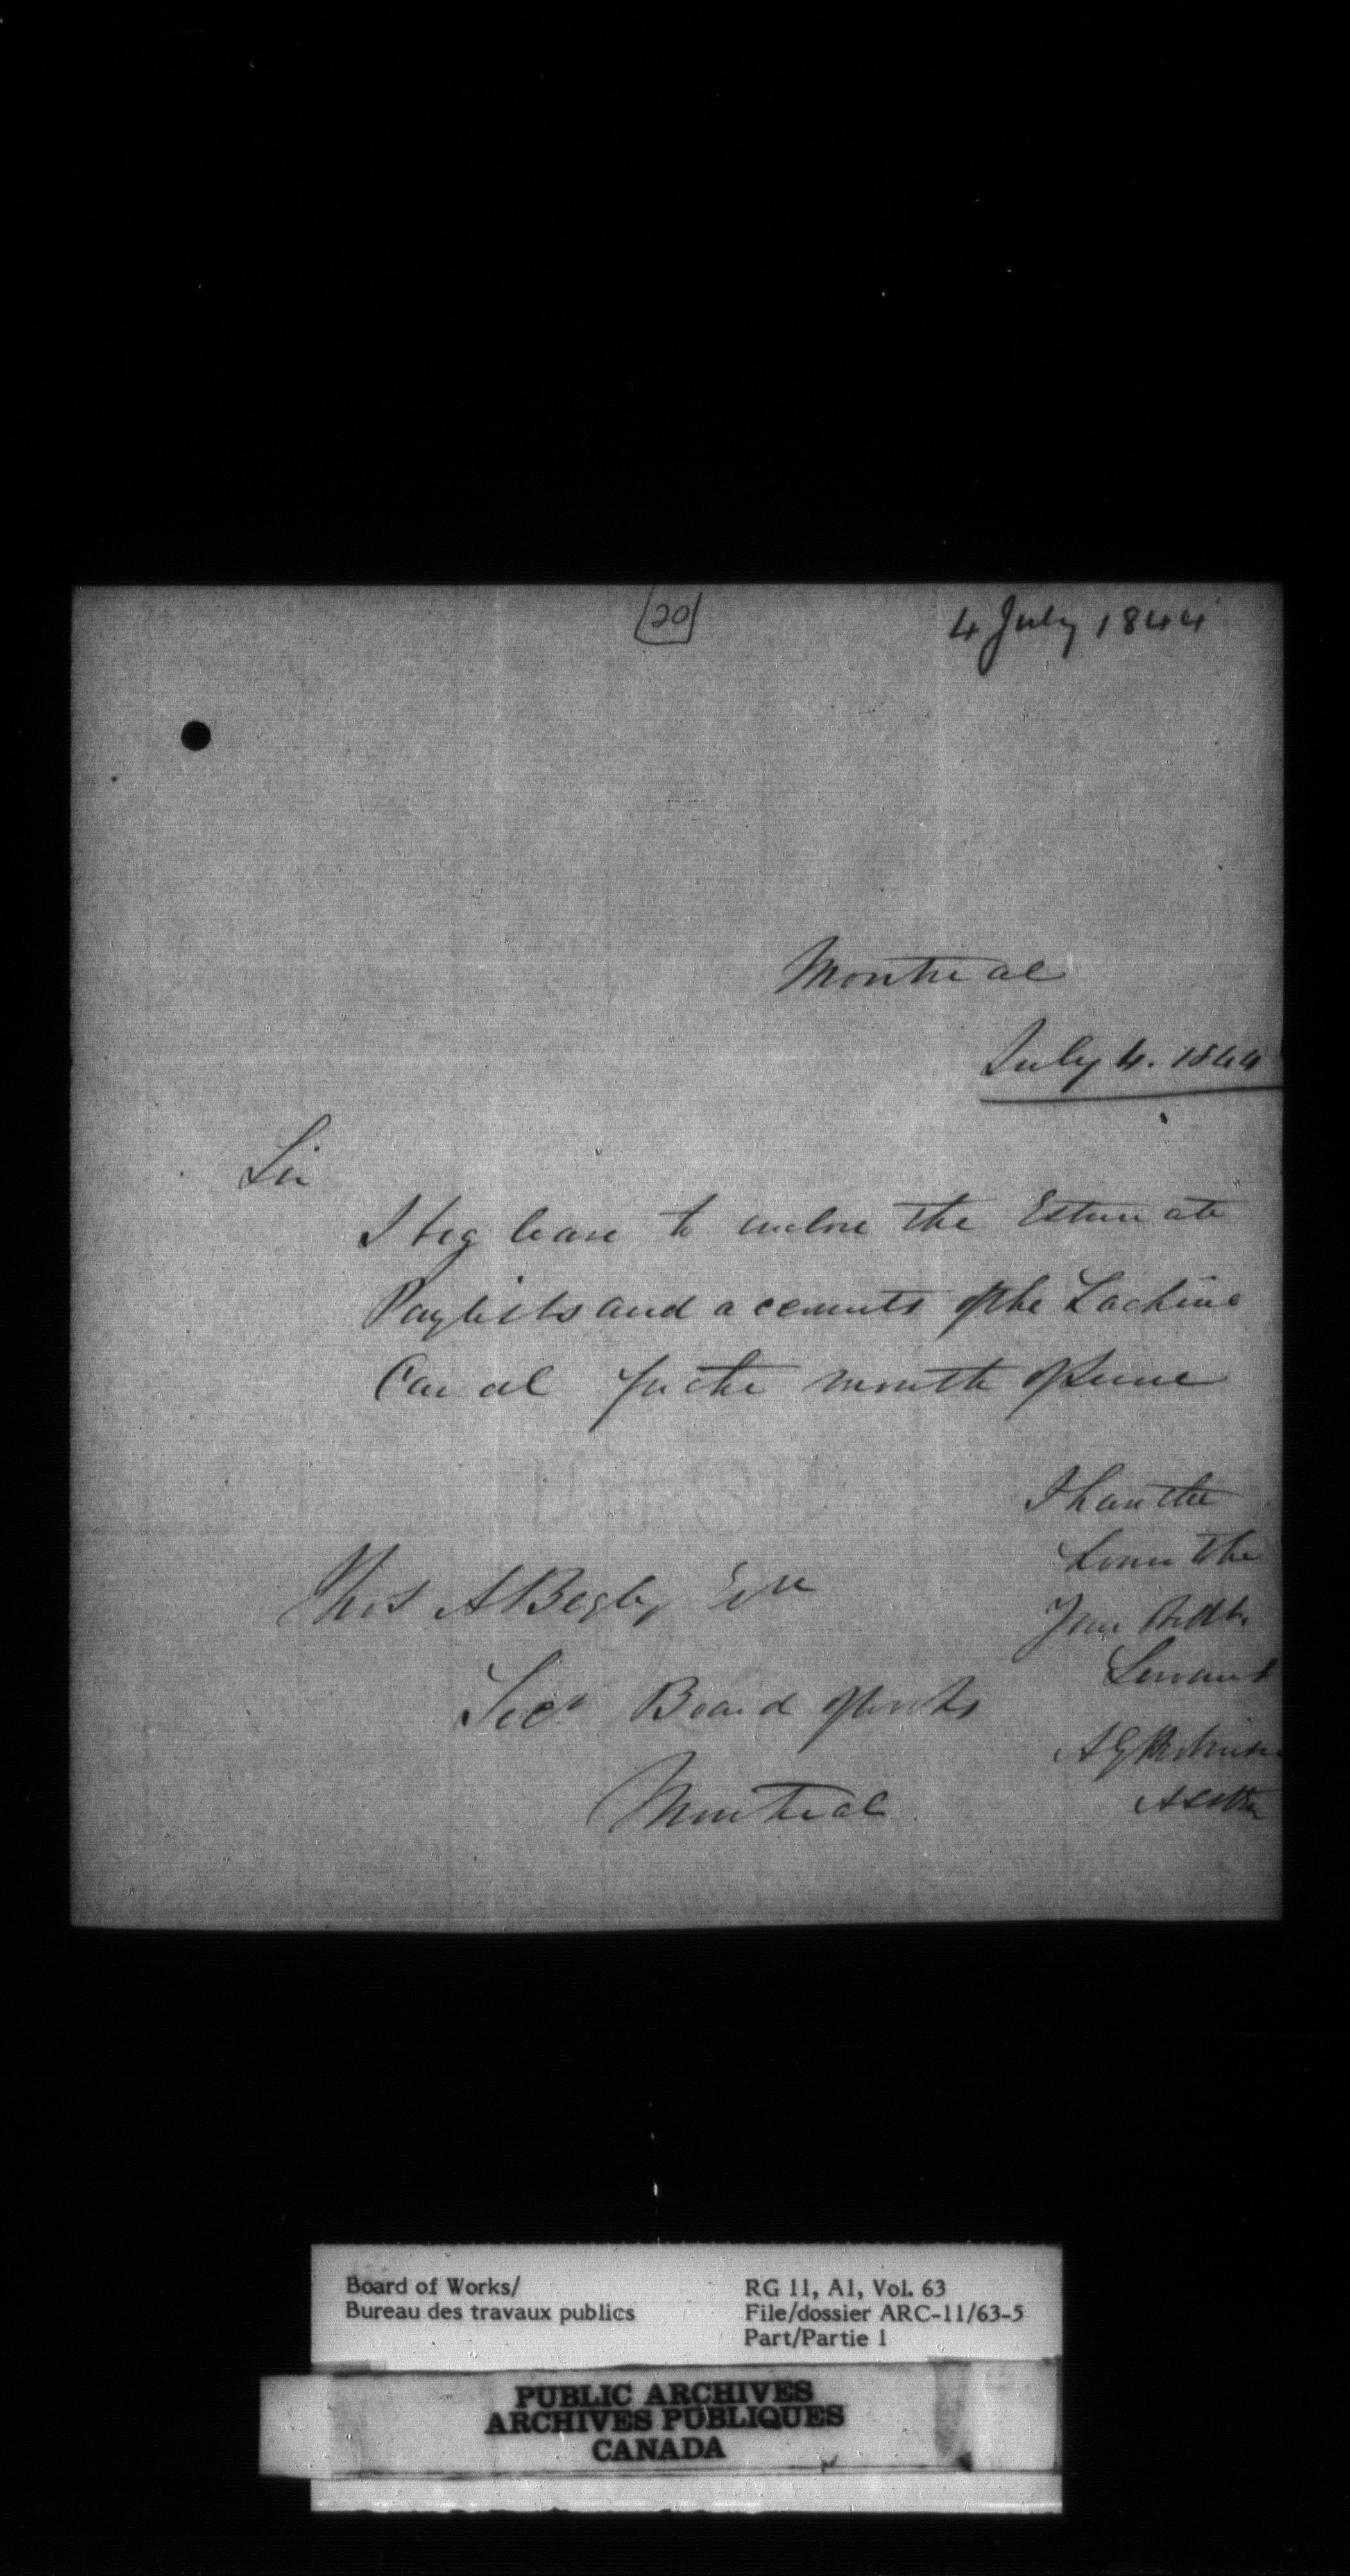 20
4 July 1844
Montreal
July 4. 1844
Sir
I beg leave to enclose the Estimate
Paylists and accounts of the Lachine
Canal for the month of June
I have the
honor to be
Your
Servant
Thos A Begly Esqre
Secy Board of Works
Montreal
Board of Works/
Bureau des travaux publics
RG 11, A1, Vol. 63
File/dossier ARC-11/63-5
Part/Partie 1
PUBLIC ARCHIVES
ARCHIVES PUBLIQUES
CANADA